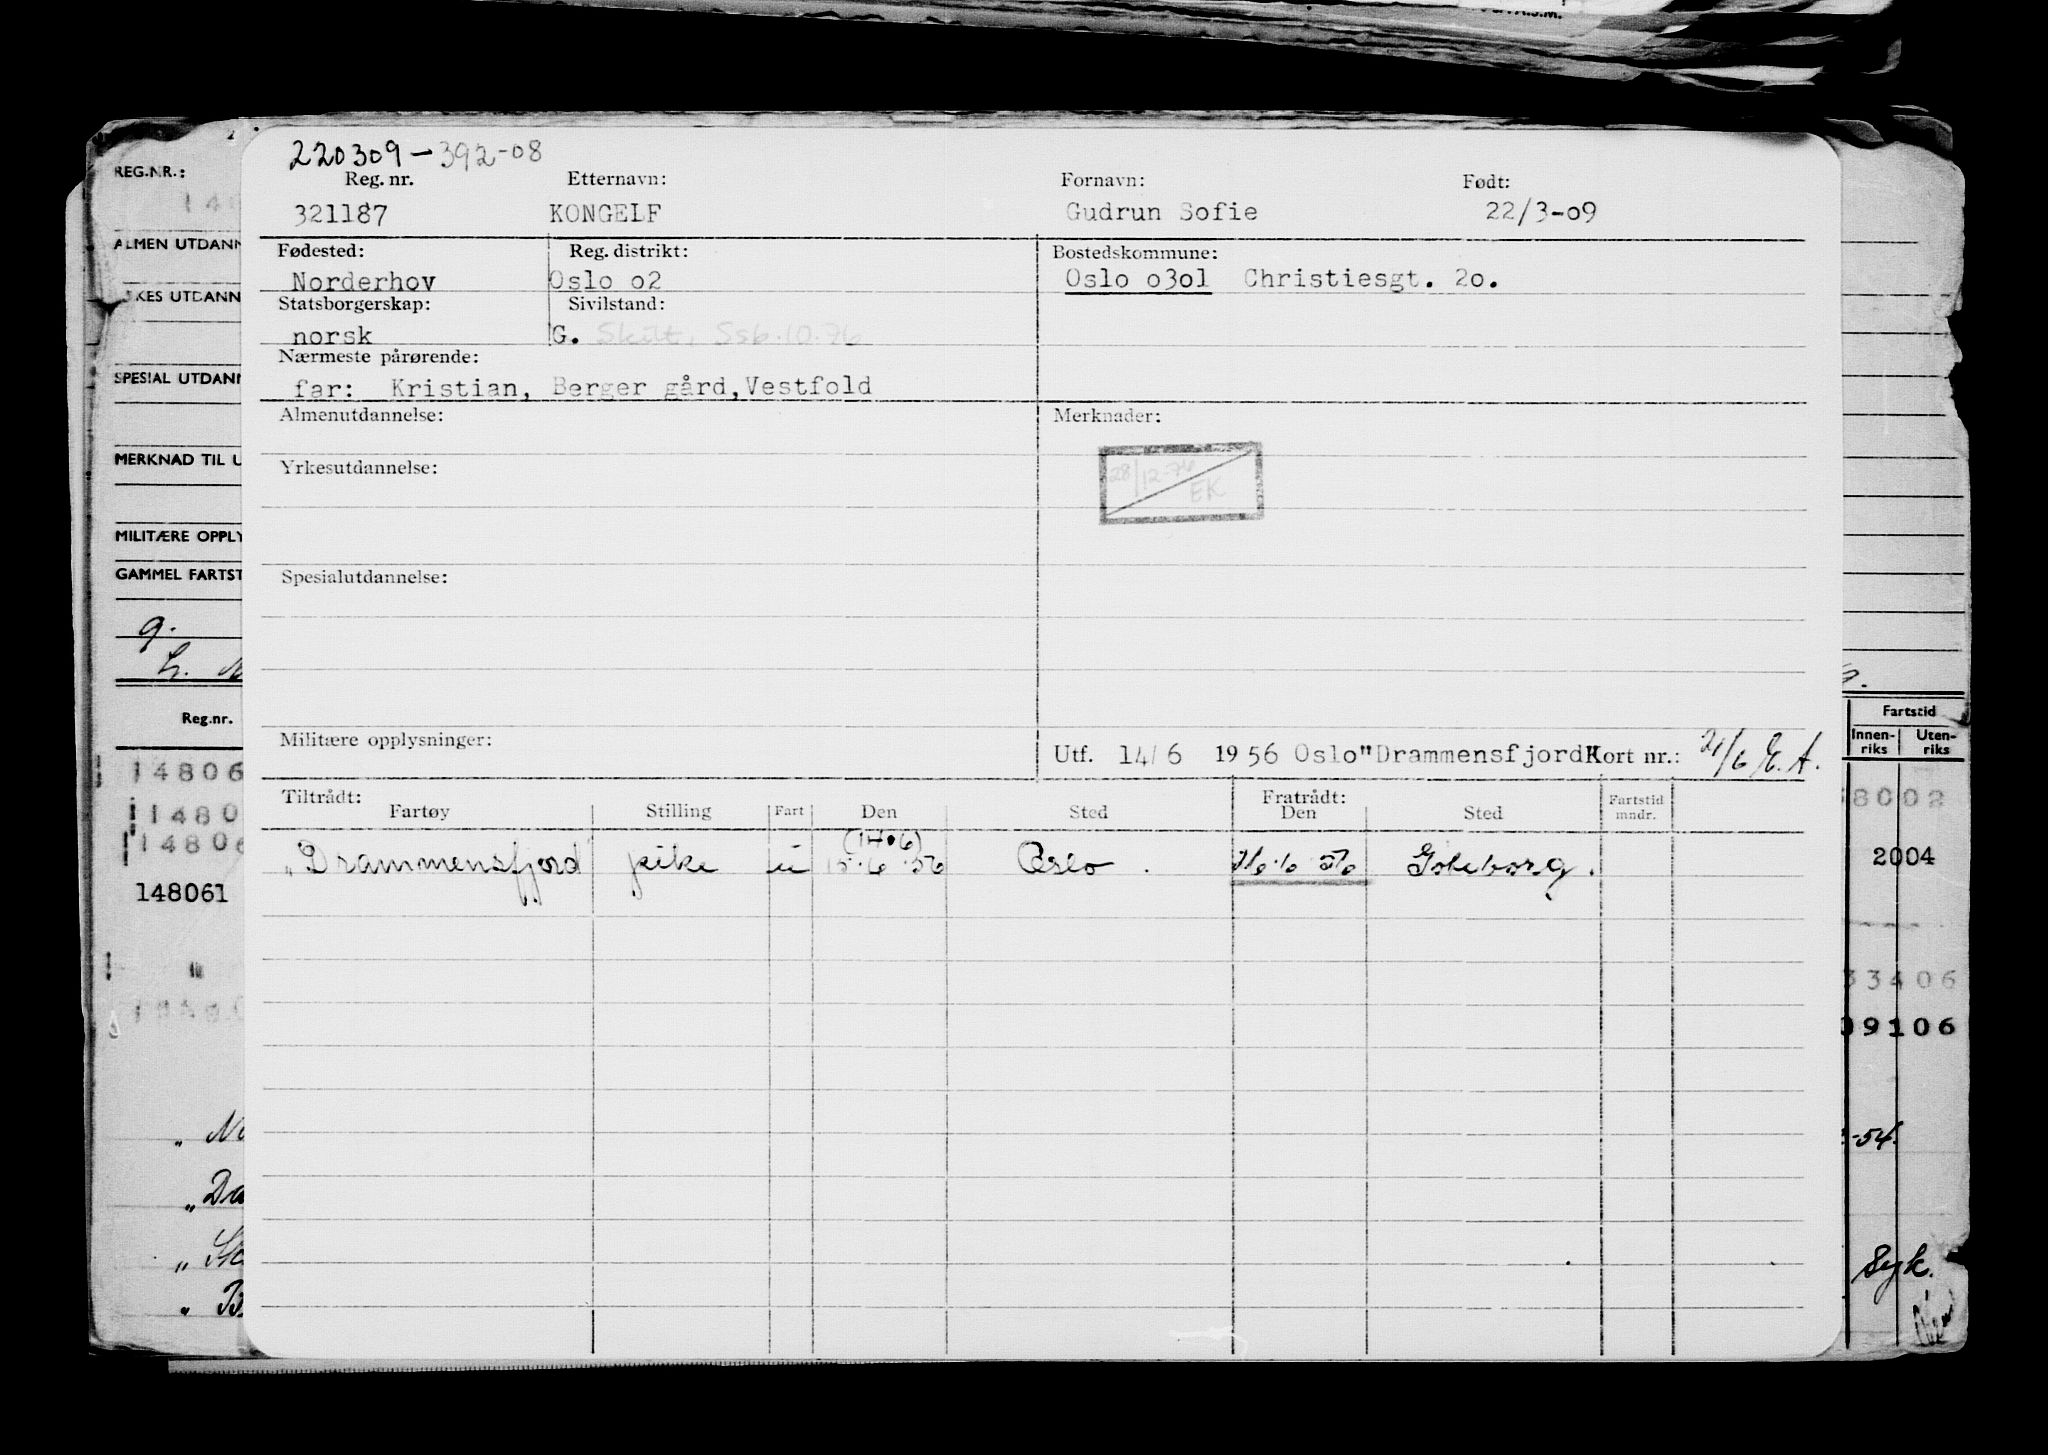 220309-392-08
Reg. nr. Etternavn: Fornavn: Født:
321187 KONGELF Gudrun Sofie 22/3-09
Fødested: Reg. distrikt: Bostedskommune:
Norderhov Oslo o2 Oslo o3o1 Christiesgt. 2o.
Statsborgerskap: Sivilstand:
norsk G. Skilt,
Nærmeste pårørende:
far: Kristian, Berger gård,Vestfold
Almenutdannelse: Merknader:
Yrkesutdannelse:
28/12-76
EK
Spesialutdannelse:
Militære opplysninger:
Utf. 14/6 1956 Oslo"Drammensfjord" Kort nr.: 21/6 E.A.
Tiltrådt: Fratrådt:
Fartøy Stilling Fart Den Sted Den Sted Fartstid mndr.
(14.6)
"Drammensfjord pike u 15.6.56 Oslo. 16.6.56 Göteborg.
REG.NR.:
ALMEN UTDANN
KES UTDANN
SPESIAL UTDANN
MERKNAD TIL U
MILITÆRE OPPLY
GAMMEL FARTST
Reg.nr.
14806
14806
148061
Fartstid
Innen-riks Uten-riks
8002
2004
33406
09106
-54.
Syk.